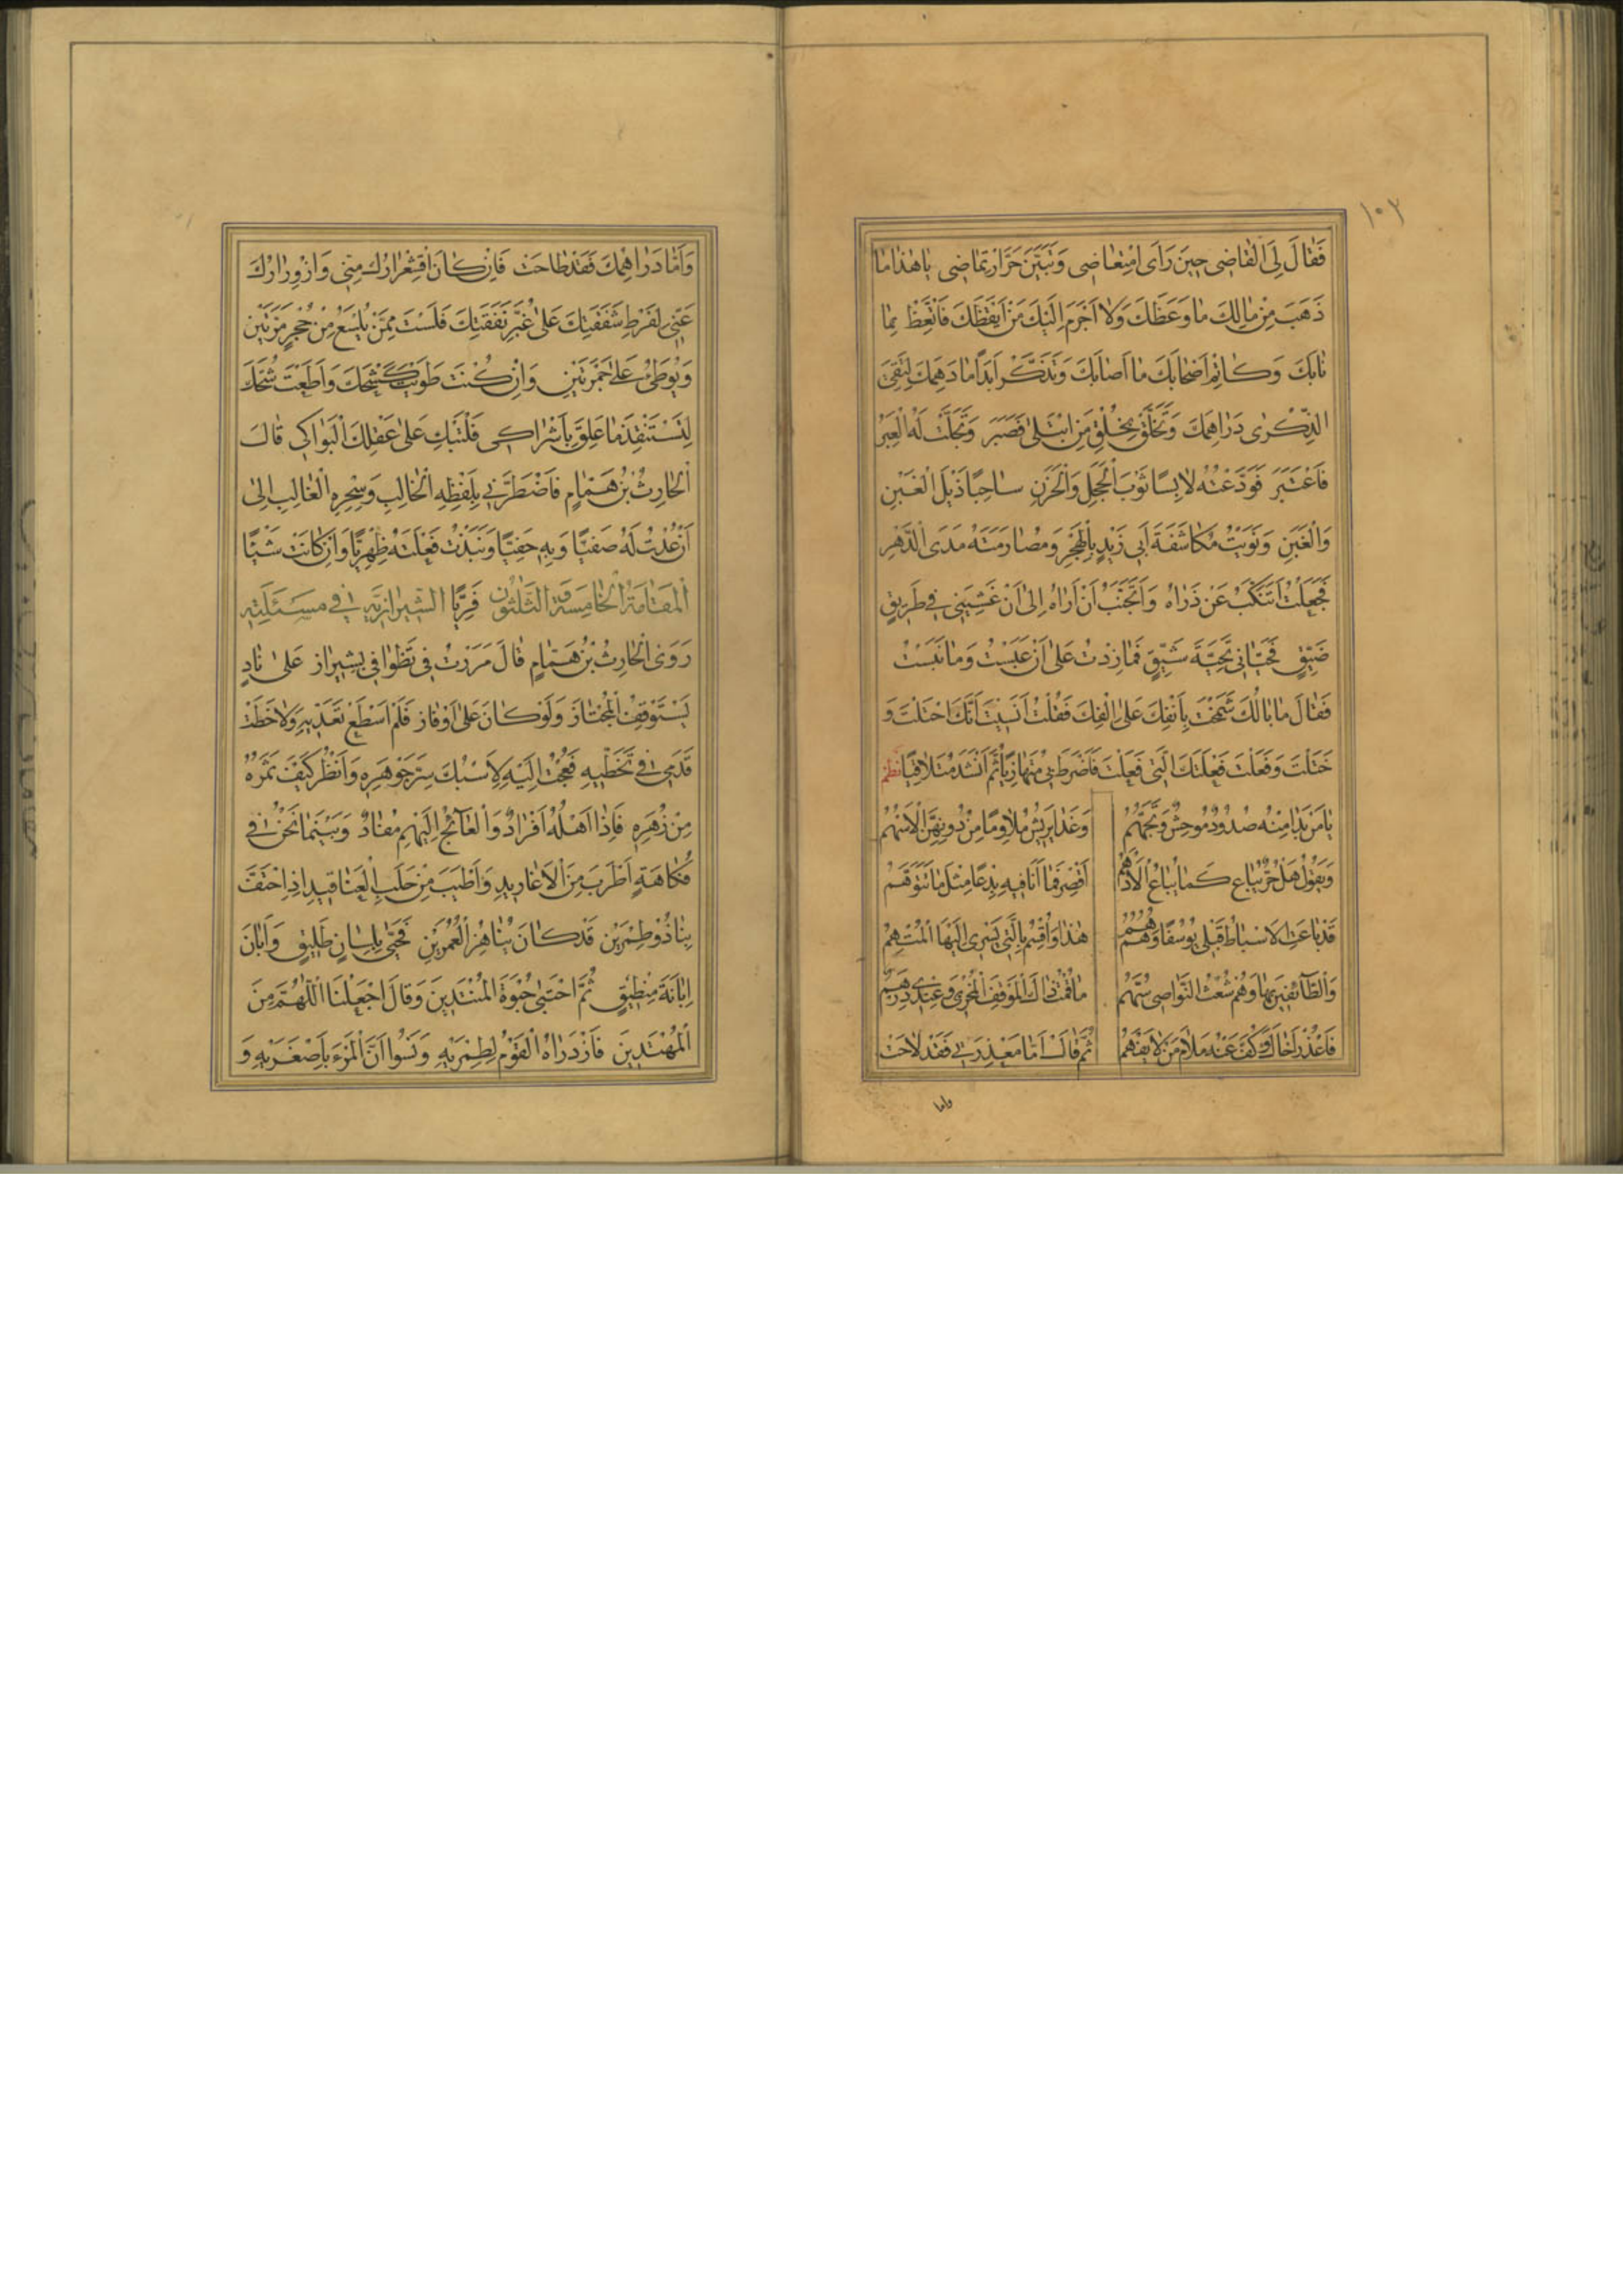 ١٠٣
فَقَالَ لِيَ الْقَاضِي حِينَ رَأَى امْتِعَاضِي وَتَبَيَّنَ حَرَّ ارْتِمَاضِي يَا هٰذَا مَا
ذَهَبَ مِنْ مَالِكَ مَا وَعَظَكَ وَلَا أَجْرَمَ إِلَيْكَ مَنْ أَيْقَظَكَ فَاتَّعِظْ بِمَا
نَابَكَ وَكَاتِمْ أَصْحَابَكَ مَا أَصَابَكَ وَتَذَكَّرْ أَبَدًا مَا دَهِمَكَ لِتَقِيَ
الذِّكْرٰى دَرَاهِمَكَ وَتَخَلَّقْ بِخُلْقِ مَنِ ابْتُلِيَ فَصَبَرَ وَتَجَلَّتْ لَهُ الْعِبَرُ
فَاعْتَبَرَ فَوَدَّعْتُهُ لَابِسًا ثَوْبَ الْخَجَلِ وَالْحَزَنِ سَاحِبًا ذَيْلَ الْغَبْنِ
وَالْغَبَنِ وَنَوَيْتُ مُكَاشَفَةَ أَبِي زَيْدٍ بِالْهَجْرِ وَمُصَارَمَتَهُ مَدَى الدَّهْرِ
فَجَعَلْتُ أَتَنَكَّبُ عَنْ ذَرَاهُ وَأَتَجَنَّبُ أَنْ أَرَاهُ إِلَى أَنْ غَشِيَنِي فِي طَرِيقٍ
ضَيِّقٍ فَحَيَّانِي تَحِيَّةَ شَيِّقٍ فَمَا زِدْتُ عَلَى أَنْ عَبَسْتُ وَمَا نَبَسْتُ
فَقَالَ مَا بَالُكَ شَمَخْتَ بِأَنْفِكَ عَلَى إِلْفِكَ فَقُلْتُ أَنَسِيتَ أَنَّكَ احْتَلْتَ وَ
خَتَلْتَ وَفَعَلْتَ فَعْلَتَكَ الَّتِي فَعَلْتَ فَأَضْرَطَ بِي مُتَهَازِيًا ثُمَّ أَنْشَدَ مُتَلَافِيًا نظم
يَا مَنْ بَدَا مِنْهُ صُدُودٌ مُوحِشٌ وَتَجَهُّمُ وَغَدَا يَرِيشُ مَلَاوِمًا مِنْ دُونِهِنَّ الْأَسْهُمُ
وَيَقُولُ هَلْ حُرٌّ يُبَاعُ كَمَا يُبَاعُ الْأَدْهَمُ أَقْصِرْ فَمَا أَنَا فِيهِ بِدْعًا مِثْلَ مَا تَتَوَهَّمُ
قَدْ بَاعَتِ الْأَسْبَاطُ قَبْلِي يُوسُفًا وَهُمُ هُمُ هٰذَا وَأُقْسِمُ بِالَّتِي يَسْرِي إِلَيْهَا الْمُتْهِمُ
وَالطَّائِفِينَ بِهَا وَهُمْ شُعْثُ النَّوَاصِي سُهَّمُ مَا قُمْتُ ذَاكَ الْمَوْقِفَ الْمُخْزِي وَعِنْدِي دِرْهَمٌ
فَاعْذُرْ أَخَاكَ وَكُفَّ عَنْهُ مَلَامَ مَنْ لَا يَفْهَمُ ثُمَّ قَالَ أَمَّا مَعْذِرَتِي فَقَدْ لَاحَتْ
واما
وَأَمَّا دَرَاهِمُكَ فَقَدْ طَاحَتْ فَإِنْ كَانَ اقْشِعْرَارُكَ مِنِّي وَازْوِرَارُكَ
عَنِّي لِفَرْطِ شَفَقَتِكَ عَلَى غُبَّرِ نَفَقَتِكَ فَلَسْتُ مِمَّنْ يَلْسَعُ مِنْ جُحْرٍ مَرَّتَيْنِ
وَيُوطِئُ عَلَى جَمْرَتَيْنِ وَإِنْ كُنْتَ طَوَيْتَ كَشْحَكَ وَأَطَعْتَ شُحَّكَ
لِتَسْتَنْقِذَ مَا عَلِقَ بِأَشْرَاكِي فَلْتَبْكِ عَلَى عَقْلِكَ الْبَوَاكِي قَالَ
الْحَارِثُ بْنُ هَمَّامٍ فَاضْطَرَّنِي بِلَفْظِهِ الْخَالِبِ وَسِحْرِهِ الْغَالِبِ إِلَى
أَنْ عُدْتُ لَهُ صَفِيًّا وَبِهِ حَفِيًّا وَنَبَذْتُ فَعْلَتَهُ ظِهْرِيًّا وَإِنْ كَانَتْ شَيْئًا
الْمَقَامَةُ الْخَامِسَةُ وَالثَّلٰثُونَ فَرِيًّا الشِّيرَازِيَّه فِي مَسْئَلَتِهِ
رَوَى الْحَارِثُ بْنُ هَمَّامٍ قَالَ مَرَرْتُ فِي تَطْوَافِي بِشِيرَازَ عَلَى نَادٍ
يَسْتَوْقِفُ الْمُجْتَازَ وَلَوْ كَانَ عَلَى أَوْفَازٍ فَلَمْ أَسْطِعْ تَعَدِّيهِ وَلَا خَطَتْ
قَدَمِي فِي تَخَطِّيهِ فَعُجْتُ إِلَيْهِ لِأَسْبُكَ سِرَّ جَوْهَرِهِ وَأَنْظُرَ كَيْفَ ثَمَرُهُ
مِنْ زَهْرِهِ فَإِذَا أَهْلُهُ أَفْرَادٌ وَالْعَائِجُ إِلَيْهِمْ مُفَادٌ وَبَيْنَمَا نَحْنُ فِي
فُكَاهَةٍ أَطْرَبَ مِنَ الْأَغَارِيدِ وَأَطْيَبَ مِنْ حَلَبِ الْعَنَاقِيدِ إِذِ احْتَفَّ
بِنَا ذُو طِمْرَيْنِ قَدْ كَانَ يُنَاهِزُ الْعُمْرَيْنِ فَحَيَّى بِلِسَانٍ طَلِيقٍ وَأَبَانَ
إِبَانَةَ مِنْطِيقٍ ثُمَّ احْتَبَى حُبْوَةَ الْمُنْتَدِينَ وَقَالَ اجْعَلْنَا اللّٰهُمَّ مِنَ
الْمُهْتَدِينَ فَازْدَرَاهُ الْقَوْمُ لِطِمْرَيْهِ وَنَسُوا أَنَّ الْمَرْءَ بِأَصْغَرَيْهِ وَ